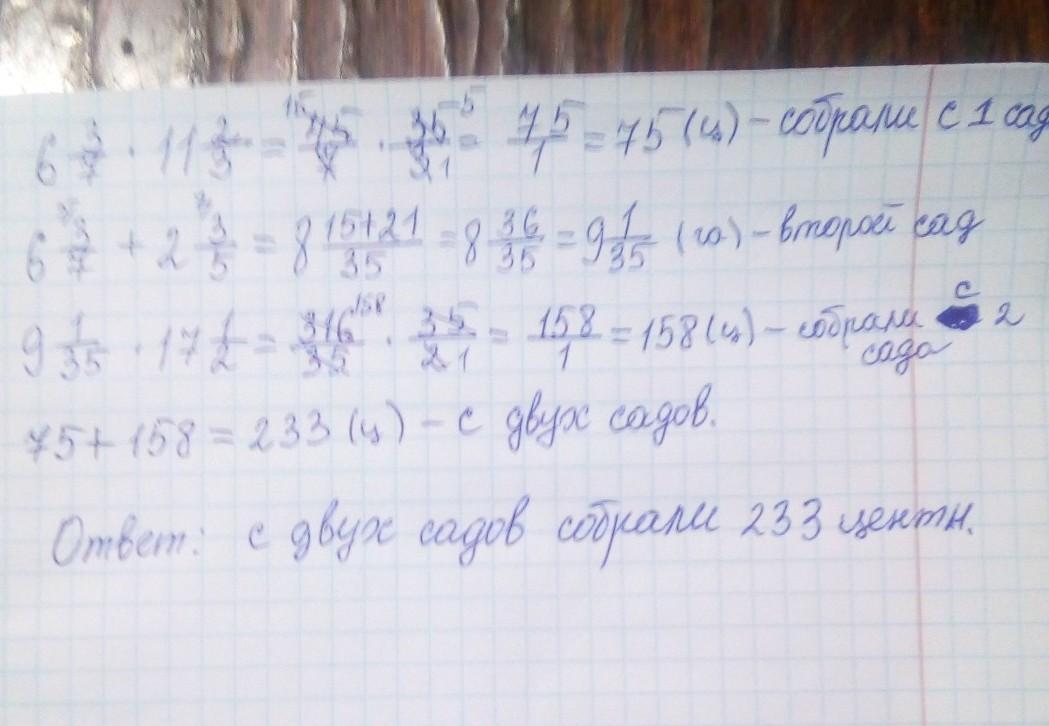 6 3/7 · 11 2/3 = 45/7 · 35/3 = 75/1 = 75 (ц) – собрали с 1 сад
6 3/7 + 2 3/5 = 8 15+21/35 = 8 36/35 = 9 1/35 (га) – второй сад
9 1/35 · 17 1/2 = 316/35 · 35/2 = 158/1 = 158 (ц) – собрали с 2
сада
75 + 158 = 233 (ц) – с двух садов.
Ответ: с двух садов собрали 233 центн.